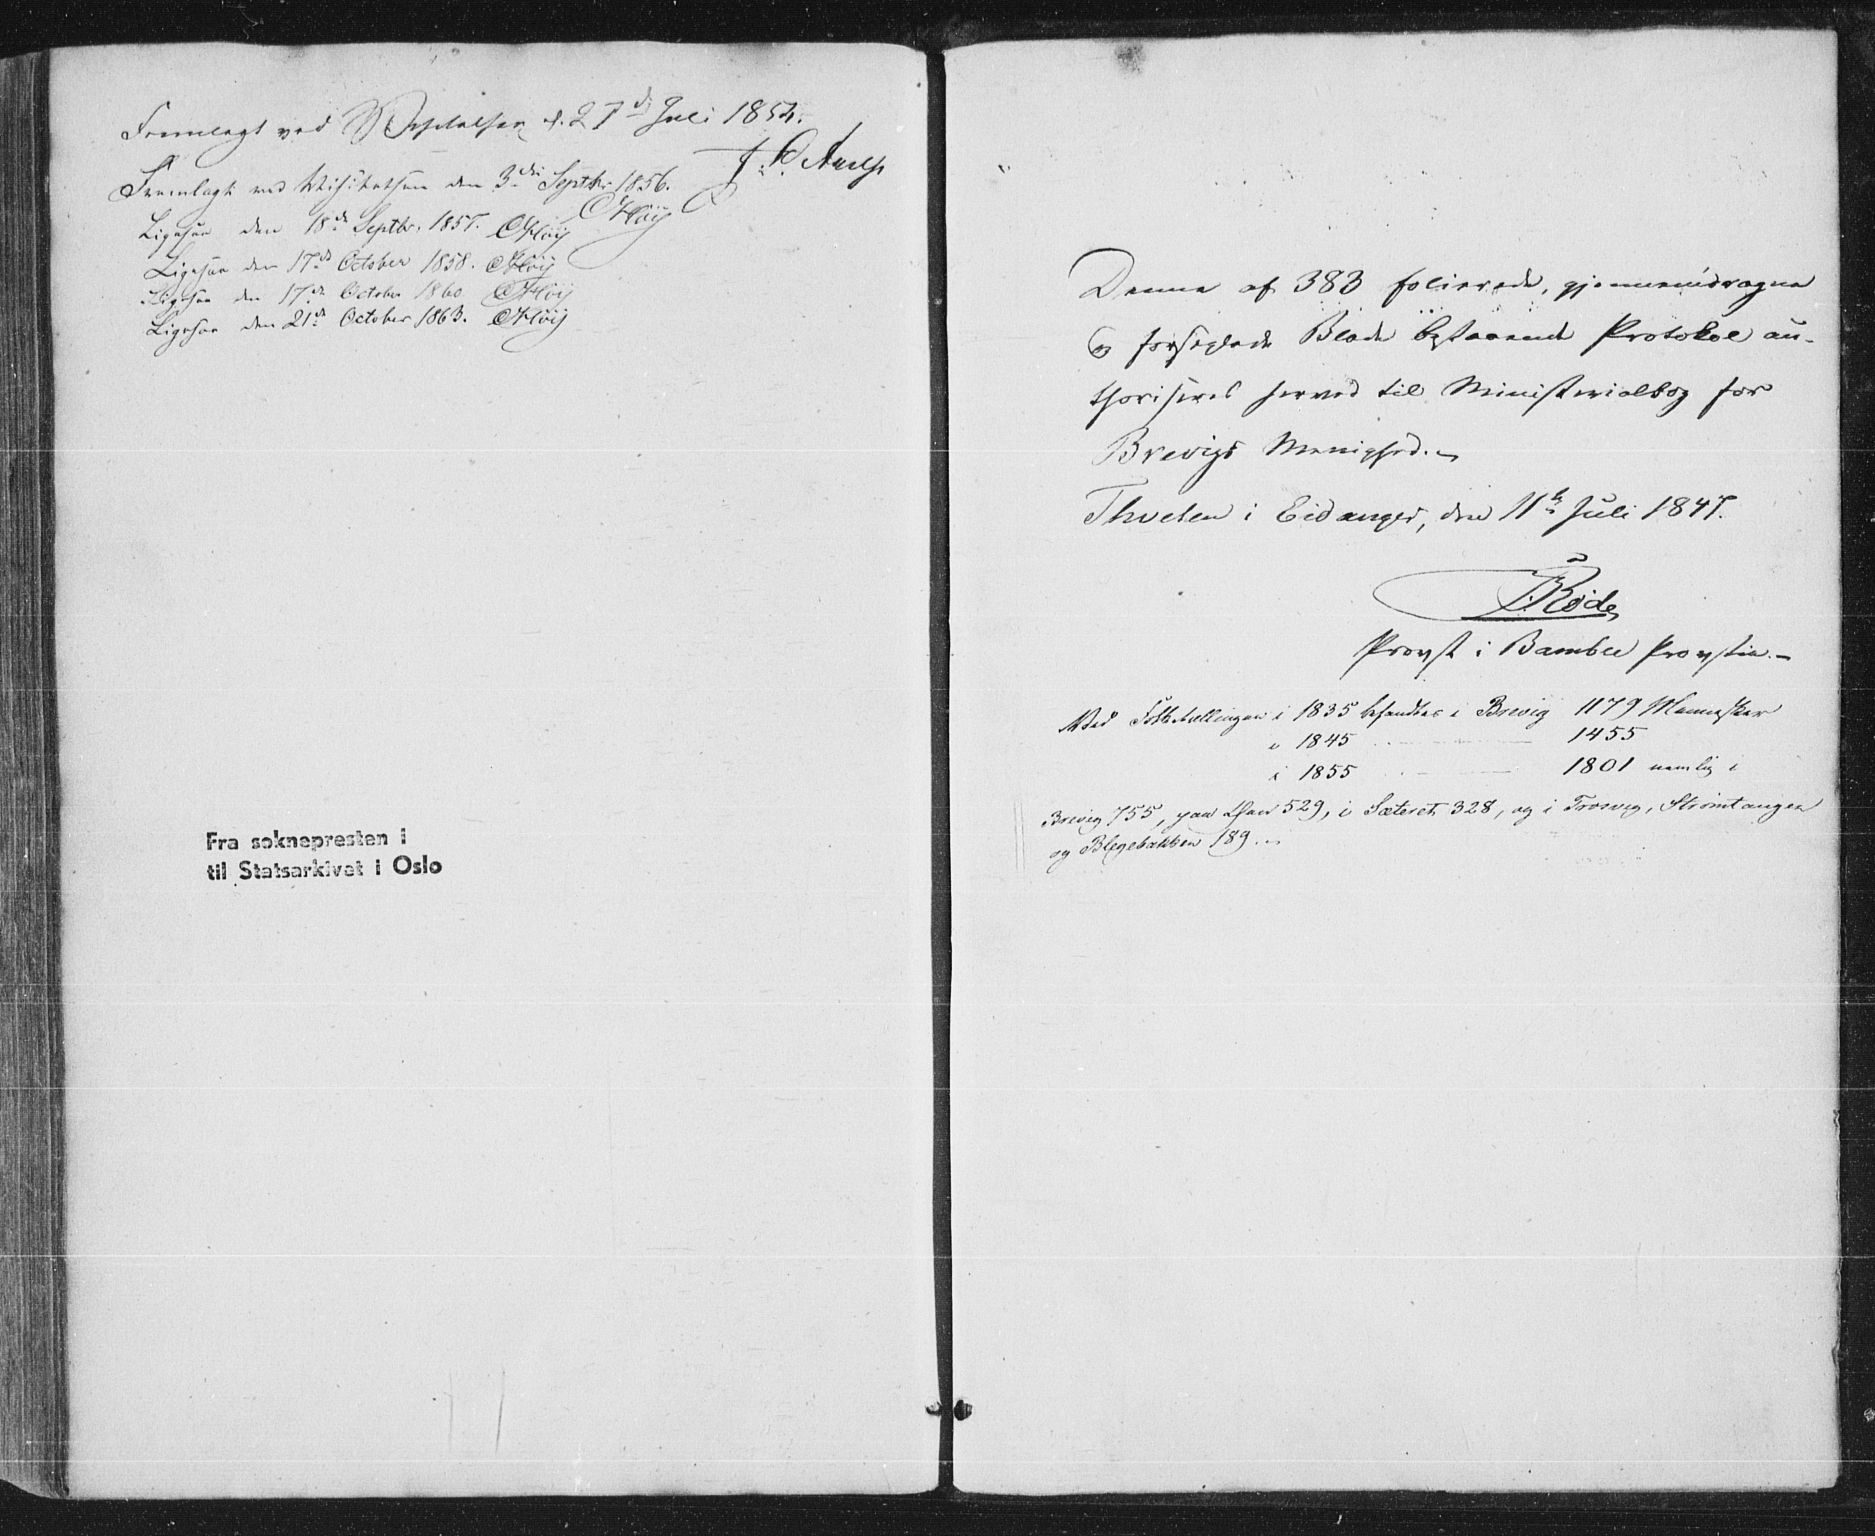 Fremlagt ved Visitatsen d. 27de Juli 1854.
J. C. Aars
Fremlagt ved Visitatsen den 3die Septbr 1856.
CHøij
Ligesaa den 18de Septbr. 1857. CHøij
Ligesaa den 17de October 1858. CHøij
Ligesaa den 17de October 1860. CHøij
Ligesaa den 21de October 1863. CHøij
Fra soknepresten i
til Statsarkivet i Oslo
Denne af 383 folierede, gjennemdragne
og forseglede Blade bestaaende Protokol au-
thoriseres herved til Ministerialbog for
Brevigs Menighed.
Thveten i Eidanger, den 11te Juli 1847.
Røde
Provst i Bamble Provstie.
Ved Folketællingen i 1835 befandtes i Brevig 1179 Mennesker
i 1845 1455
i 1855 1801 nemlig i
Brevig 755, paa Øen 529, i Sæteret 328, og i Trosvig, Strømtangen
og Blegebakken 189.